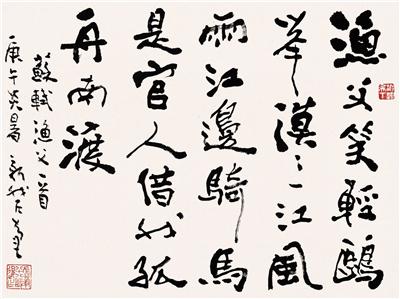 漁父笑輕鷗
举漠〻一江風
雨江邊騎馬
是官人借我孤
舟南渡
蘇軾漁父一首
庚午炎暑新我左筆